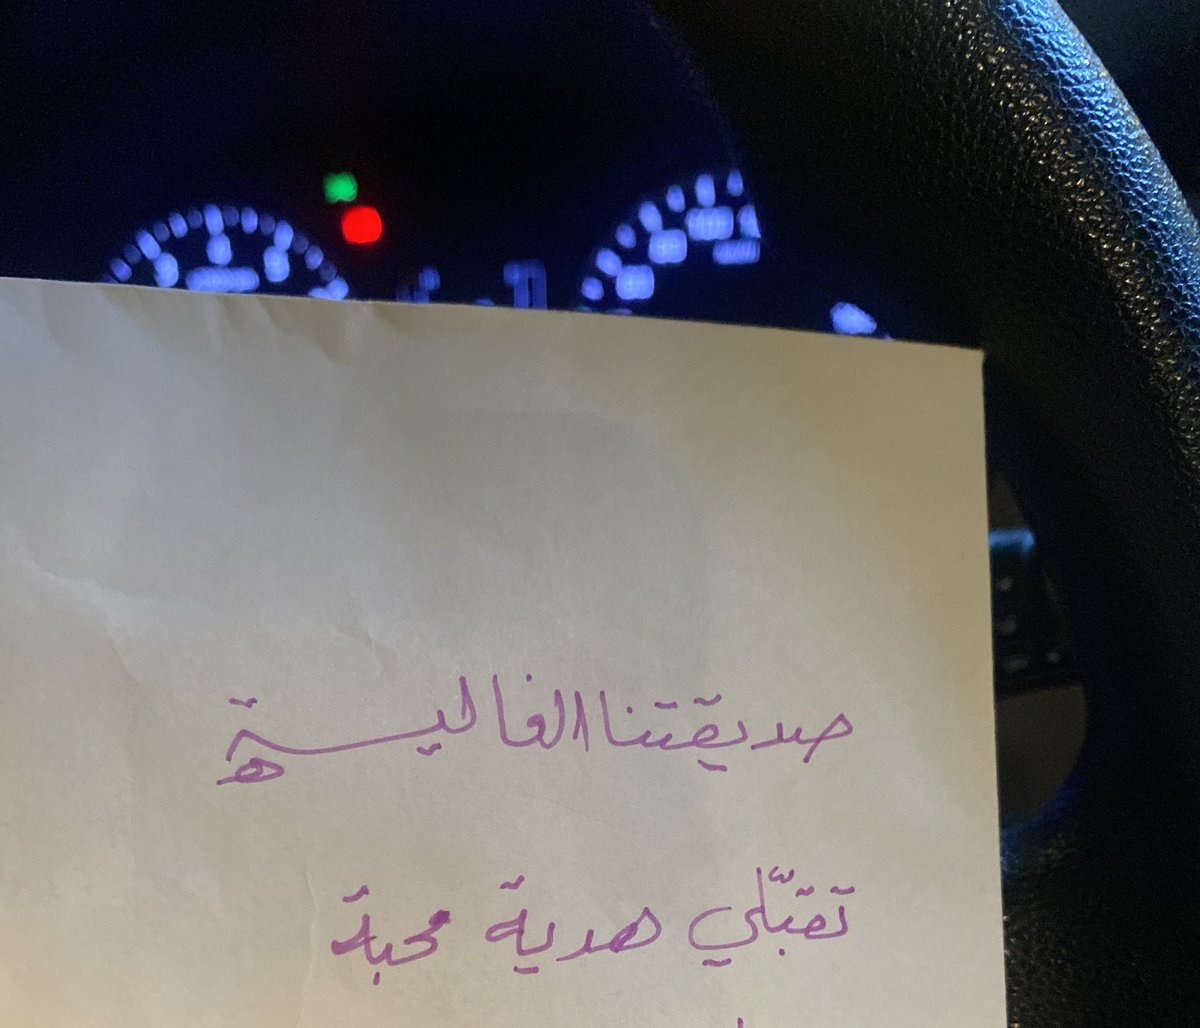 صديقتنا الغالية
تقبّلي هدية محبة